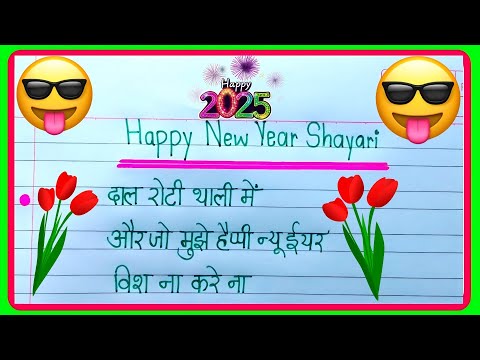 Happy
2025
Happy New Year Shayari
दाल रोटी थाली में
और जो मुझे हैप्पी न्यू ईयर
विश ना करे ना